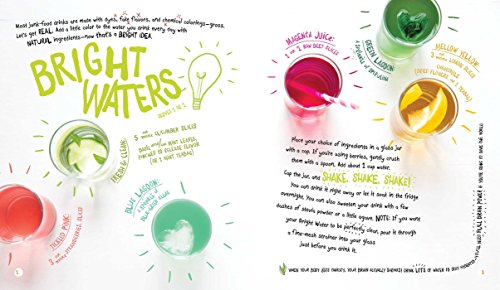 Most junk-food drinks are made with dyes, fake flavors, and chemical colorings—gross.
Let's get REAL. Add a little color to the water you drink every day with
NATURAL ingredients—now that's a BRIGHT IDEA.
BRIGHT
WATERS
SERVES 1 TO 2
FRESH & CLEAN:
5 OR MORE CUCUMBER SLICES
BASIL AND/OR MINT LEAVES,
PINCHED TO RELEASE FLAVOR
(OR 1 MINT TEABAG)
BLUE LAGOON:
BLUE-GREEN ALGAE
TICKLED PINK:
3 OR MORE STRAWBERRIES, SLICED
MAGENTA JUICE:
1 OR 2 RAW BEET SLICES
GREEN LAGOON:
MELLOW YELLOW:
3 OR MORE LEMON SLICES
CHAMOMILE
(DRIED FLOWERS OR 1 TEABAG)
Place your choice of ingredients in a glass jar
with a cap. If you're using berries, gently crush
them with a spoon. Add about 1 cup water.
Cap the jar, and SHAKE, SHAKE, SHAKE!
You can drink it right away or let it sit in the fridge
overnight. You can also sweeten your drink with a few
dashes of stevia powder or a little agave. NOTE: If you want
your Bright Water to be perfectly clear, pour it through
a fine-mesh strainer into your glass
just before you drink it.
WHEN YOUR BODY FEELS THIRSTY, YOUR BRAIN ACTUALLY SHRINKS! DRINK LOTS OF WATER TO STAY HYDRATED—
YOU'LL NEED FULL BRAIN POWER IF YOU'RE GOING TO SAVE THE WORLD!